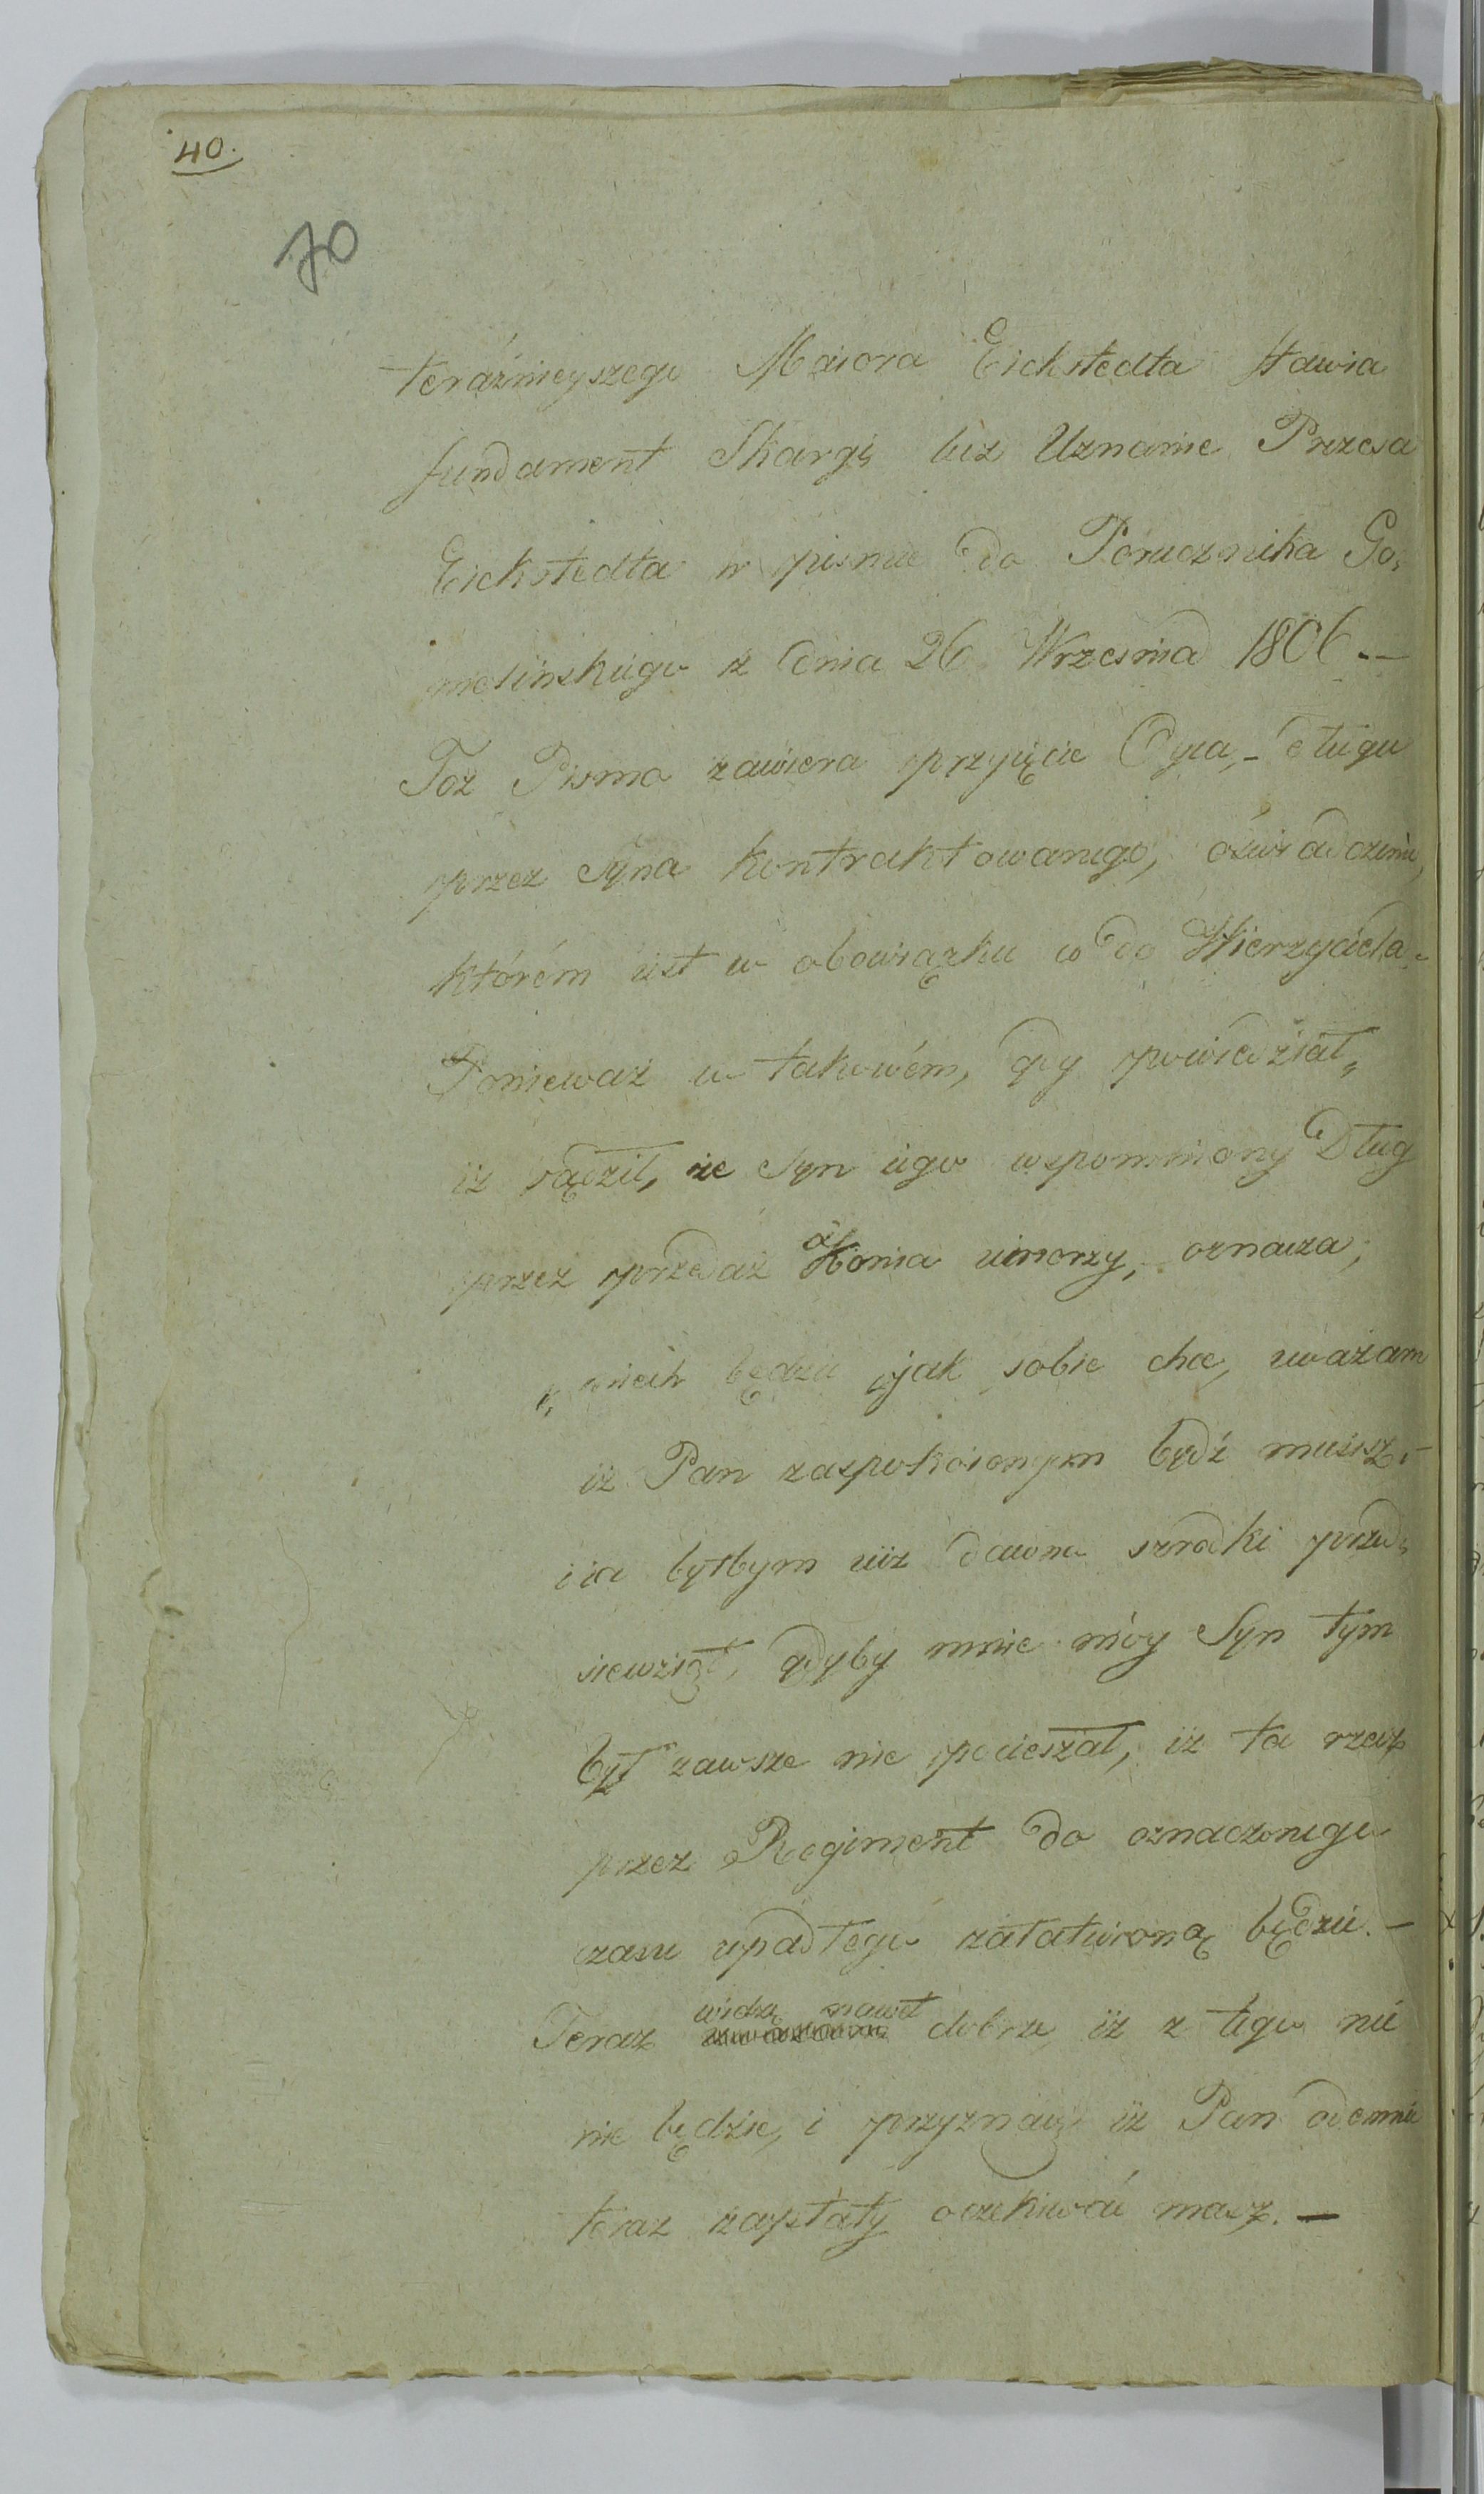 40.
70
teraźnieyszego Maiora Eickstedta stawia
fundament Skargi lüz Uznanie Prezesa
Eickstedta w pismie do Porucznika Go,
melinskiego z dnia 26 Wrzesnia 1806 –
Toż Pismo zawiera przyięcie Oyca, – długu
przez Syna kontraktowanego, oświadczenie,
którém iest w obowiązku co do Wierzyciela. –
Ponieważ w takowém, gdy powiedział,
iż sądził, że Syn iego wspomniony Dług
przez sprzedaż Konia umorzy, – oznacza;
„ niech będzie jak sobie chce, uważam
iż Pan zaspokoionym bydź musisz. –
i ia byłbym iuż dawno srzodki przed,
siewziął, gdyby mnie móy Syn tym
był zawsze nie pocieszał, iż ta rzecz
przez Regiment do oznaczonego
czasu upadłego załatwioną będzie. –
Teraz widzę nawet dobrze, iż z tego nic
nie będzie, i przyznaię iż Pan odemnie
teraz zapłaty oczekiwać masz. –